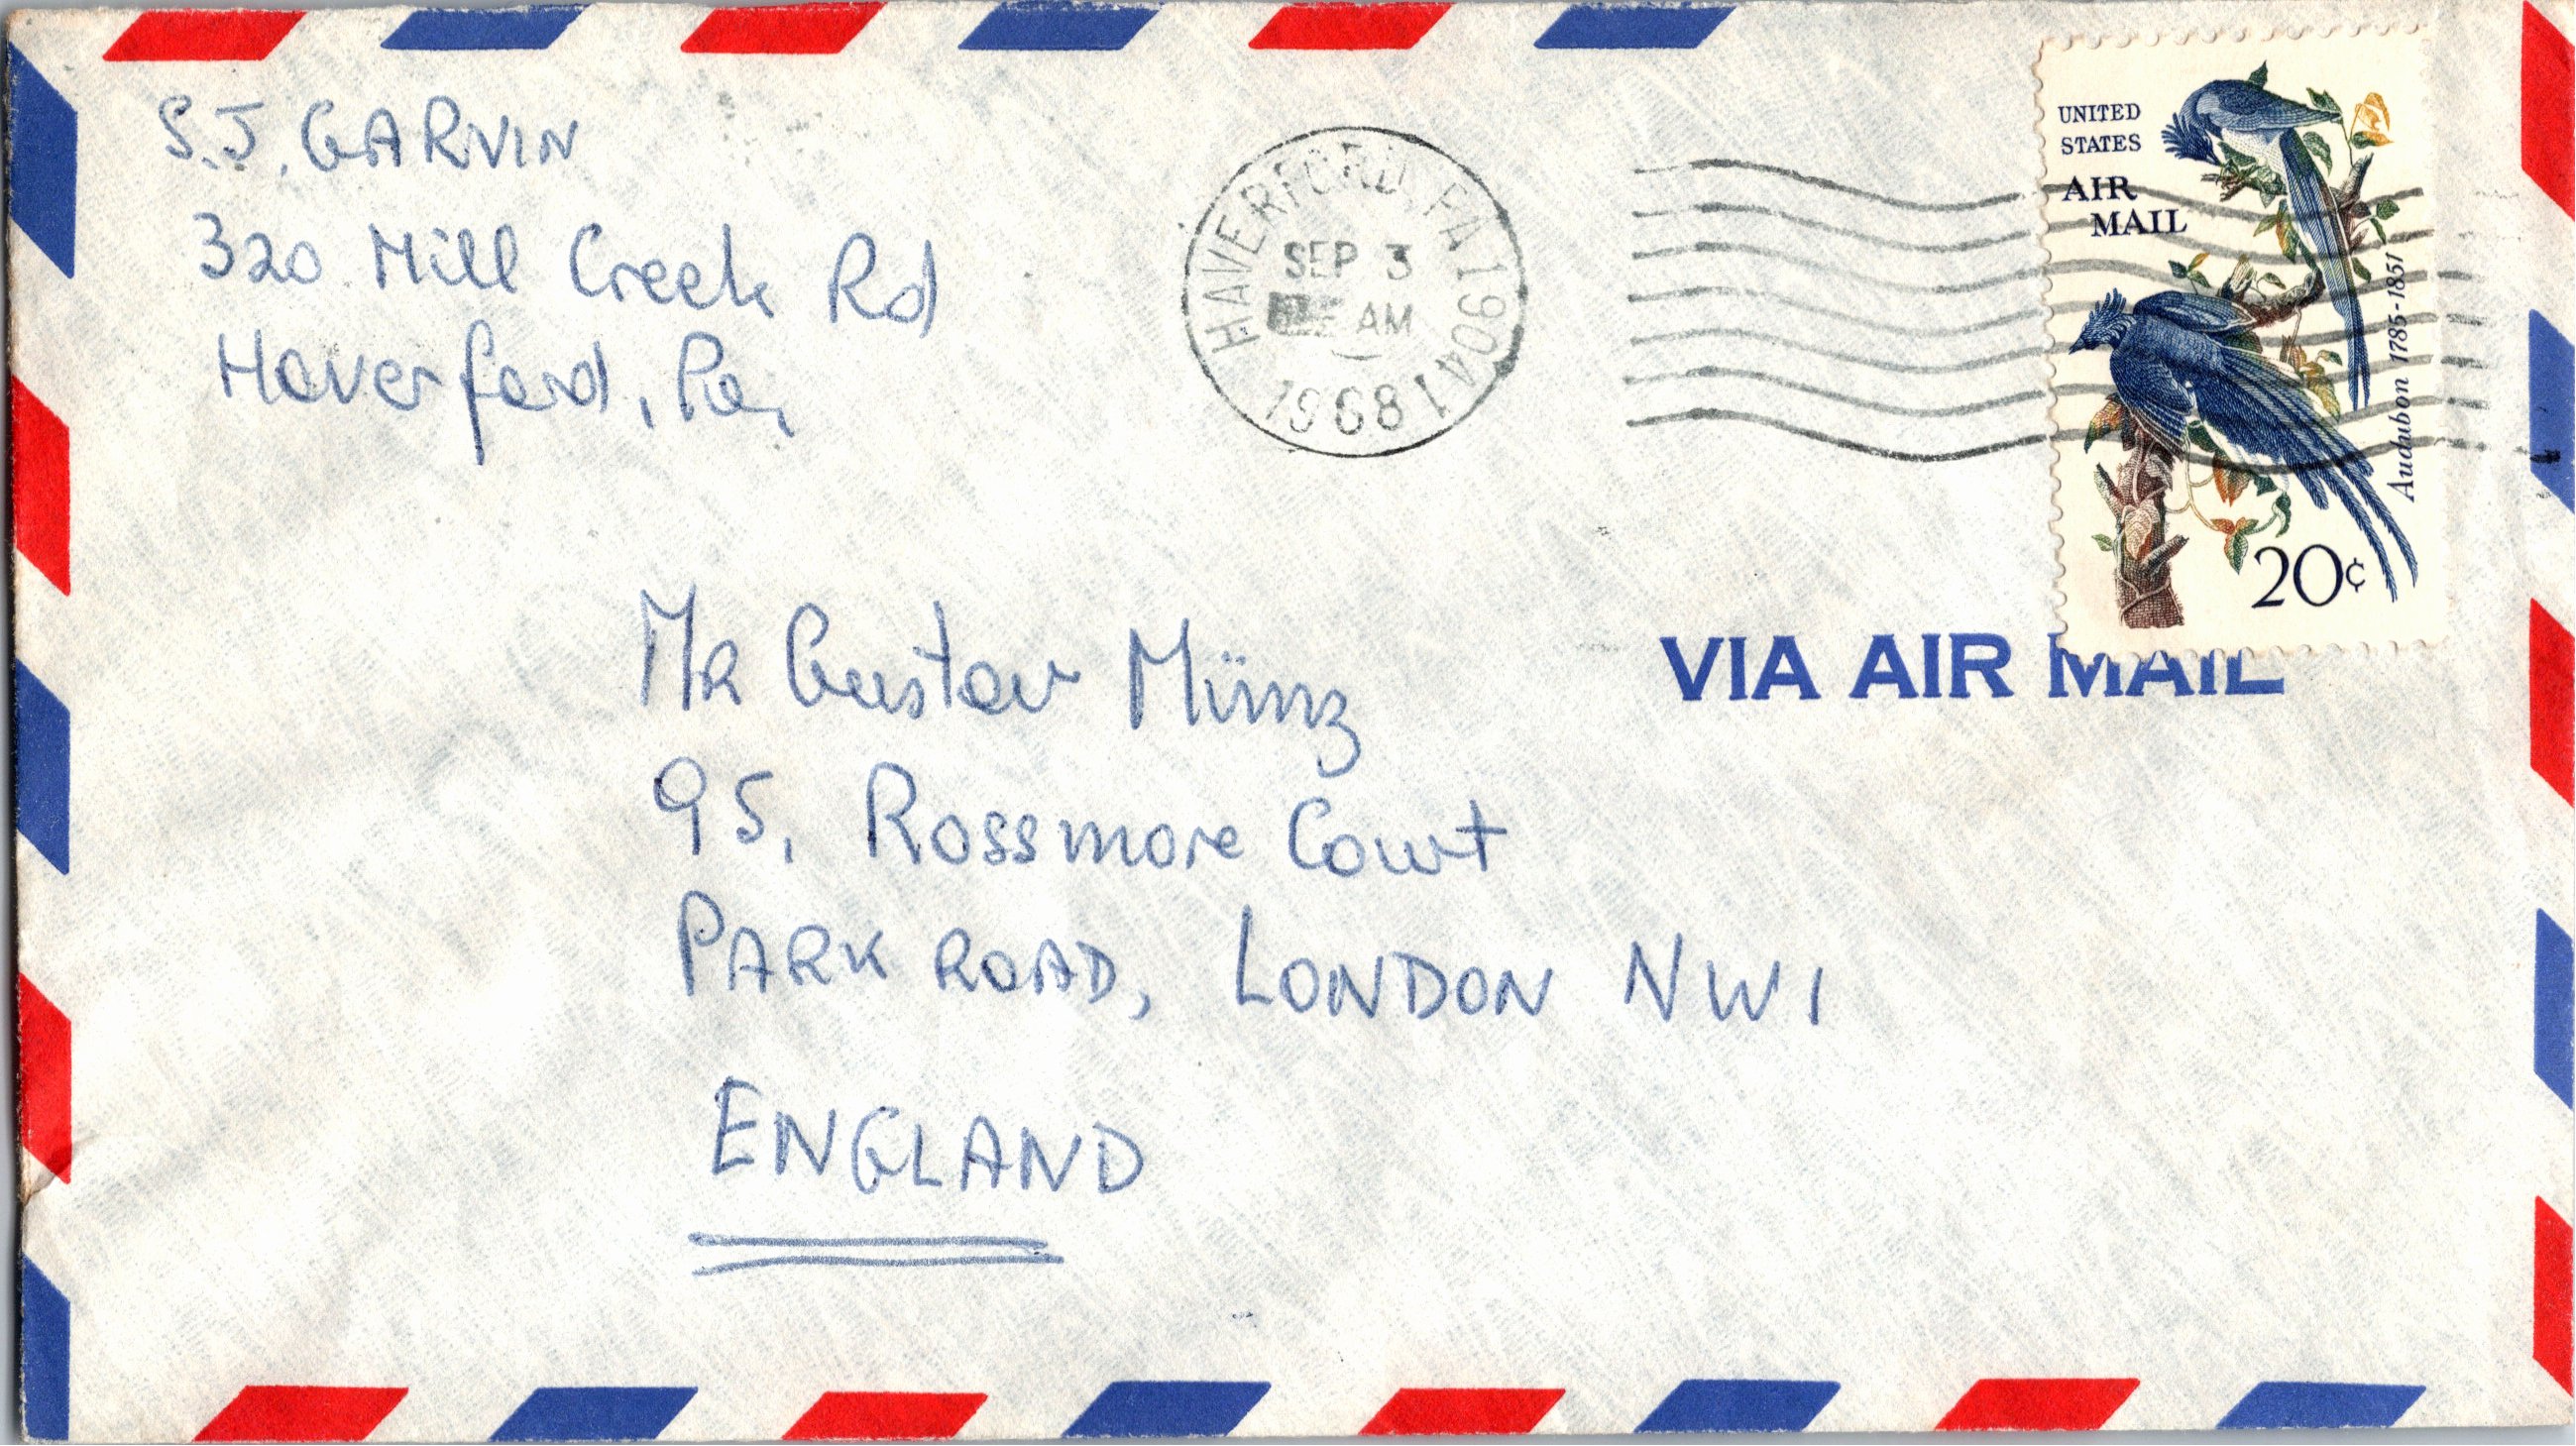 S.J. GARVIN
320 Mill Creek Rd
Haverford, Pa,
HAVERFORD, PA 19041
SEP 3
AM
1968
UNITED
STATES
AIR
MAIL
Audubon 1785-1851
20¢
VIA AIR MAIL
Mr Gustav Münz
95, Rossmore Court
PARK ROAD, LONDON NW1
ENGLAND